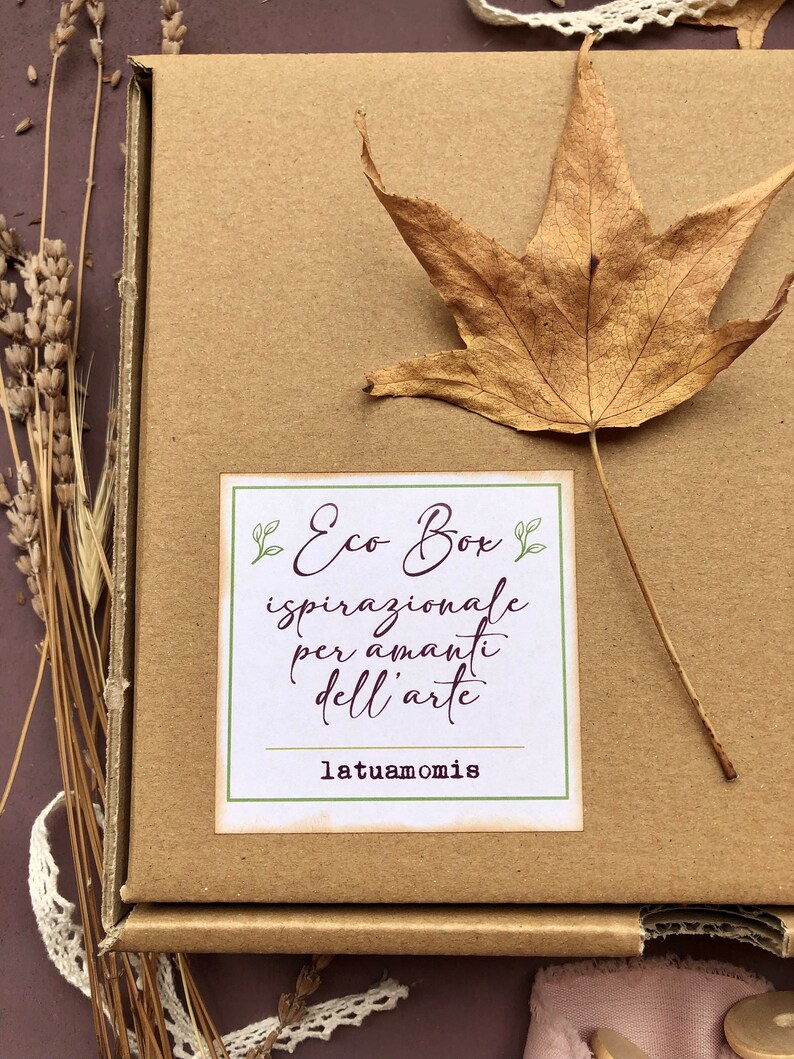 Eco Box
ispirazionale
per amanti
dell'arte
latuamomis